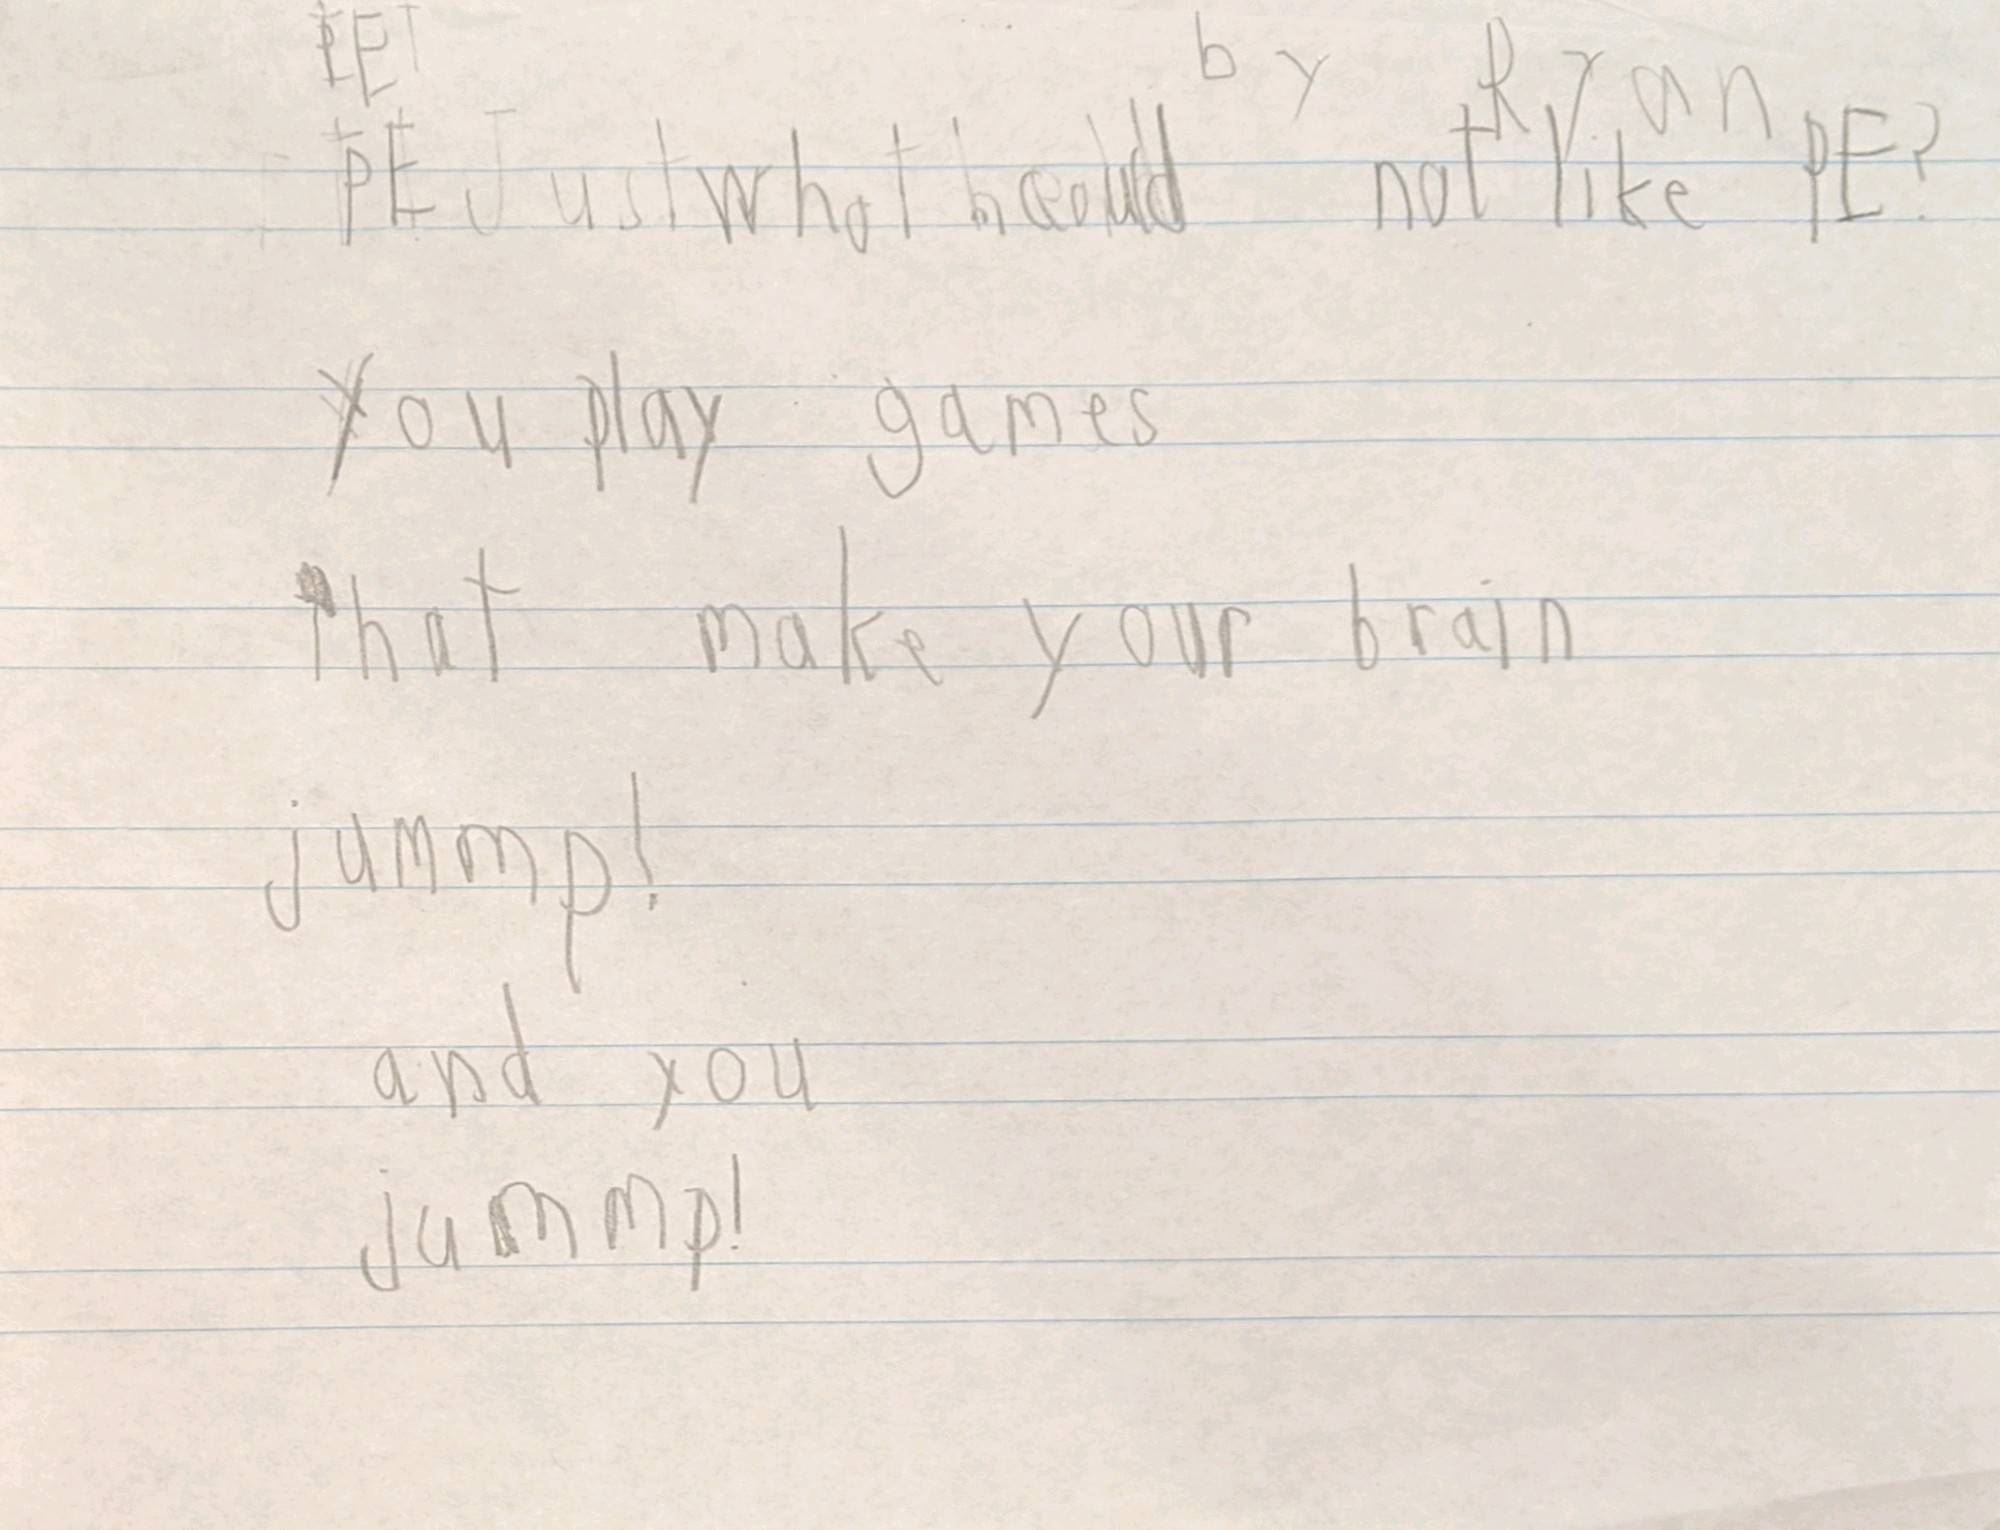 PE by Ryan
PE Just what could not like PE?
You play games
that make your brain
jummp!
and you
jummp!